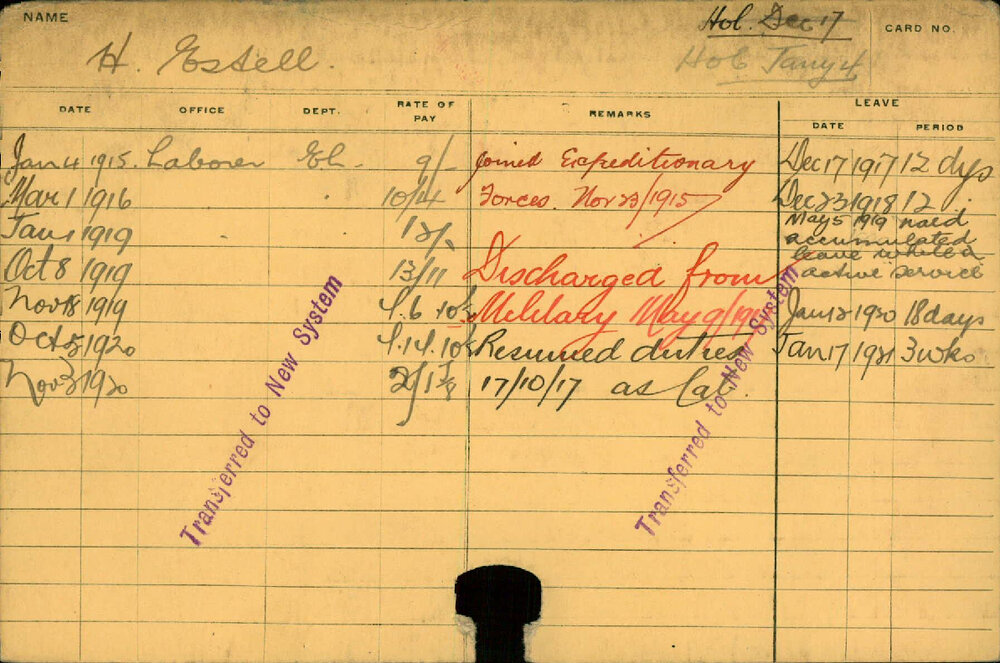 NAME
H. Estell.
Hol. Dec 17
Hol Jany 4
CARD NO.
DATE OFFICE DEPT. RATE OF PAY REMARKS LEAVE
DATE PERIOD
Jan 4 1915. Laborer El. 9/- Joined Expeditionary Dec 17 1917 12 dys
Mar 1 1916 10/4 Forces. Nov 23/1915 Dec 23 1918 12
Jan 1 1919 12/- May 5 1919 paid
accumulated
leave whilst on
active service
Oct 8 1919 13/11 Discharged from
Nov 18 1919 Military May 9/191 Jan 12 1920 18 days
Oct 5 1920 Resumed duties Jan 17 1921 3 wks
Nov 3 1920 17/10/17 as Cas.
Transferred to New System
Transferred to New System